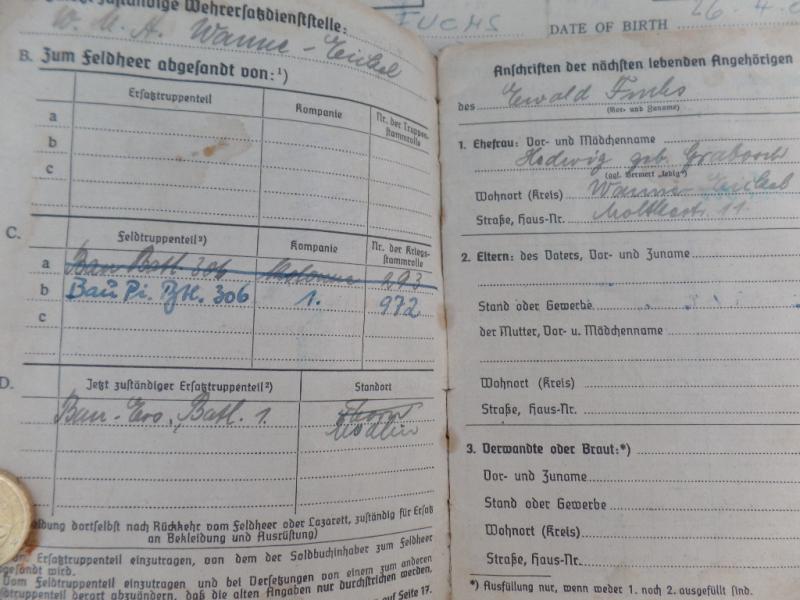 FUCHS DATE OF BIRTH 26.4.
zuständige Wehrersatzdienststelle:
W. M. A. Wanne-Eickel
B. Zum Feldheer abgesandt von:¹)
Ersatztruppenteil Kompanie Nr. der Truppenstammrolle
a
b
c
C. Feldtruppenteil²) Kompanie Nr. der Kriegsstammrolle
a Bau Batl. 306 Kolonne 293
b Bau Pi. Btl. 306 1. 972
c
D. Jetzt zuständiger Ersatztruppenteil²) Standort
Bau-Ers. Batl. 1. Thorn
Modlin
dortselbst nach Rückkehr vom Feldheer oder Lazarett, zuständig für Ersatz
an Bekleidung und Ausrüstung)
Ersatztruppenteil einzutragen, von dem der Soldbuchinhaber zum Feldheer
wird.
Vom Feldtruppenteil einzutragen und bei Versetzungen von einem zum anderen
derart abzuändern, daß die alten Angaben nur durchstrichen werden,
auf Seite 17.
Anschriften der nächsten lebenden Angehörigen
des Ewald Fuchs
(Vor- und Zuname)
1. Ehefrau: Vor- und Mädchenname
Hedwig geb.
(ggf. Vermerk „ledig“)
Wohnort (Kreis) Wanne-Eickel
Straße, Haus-Nr. Moltkestr. 11
2. Eltern: des Vaters, Vor- und Zuname
Stand oder Gewerbe
der Mutter, Vor- u. Mädchenname
Wohnort (Kreis)
Straße, Haus-Nr.
3. Verwandte oder Braut:*)
Vor- und Zuname
Stand oder Gewerbe
Wohnort (Kreis)
Straße, Haus-Nr.
*) Ausfüllung nur, wenn weder 1. noch 2. ausgefüllt sind.